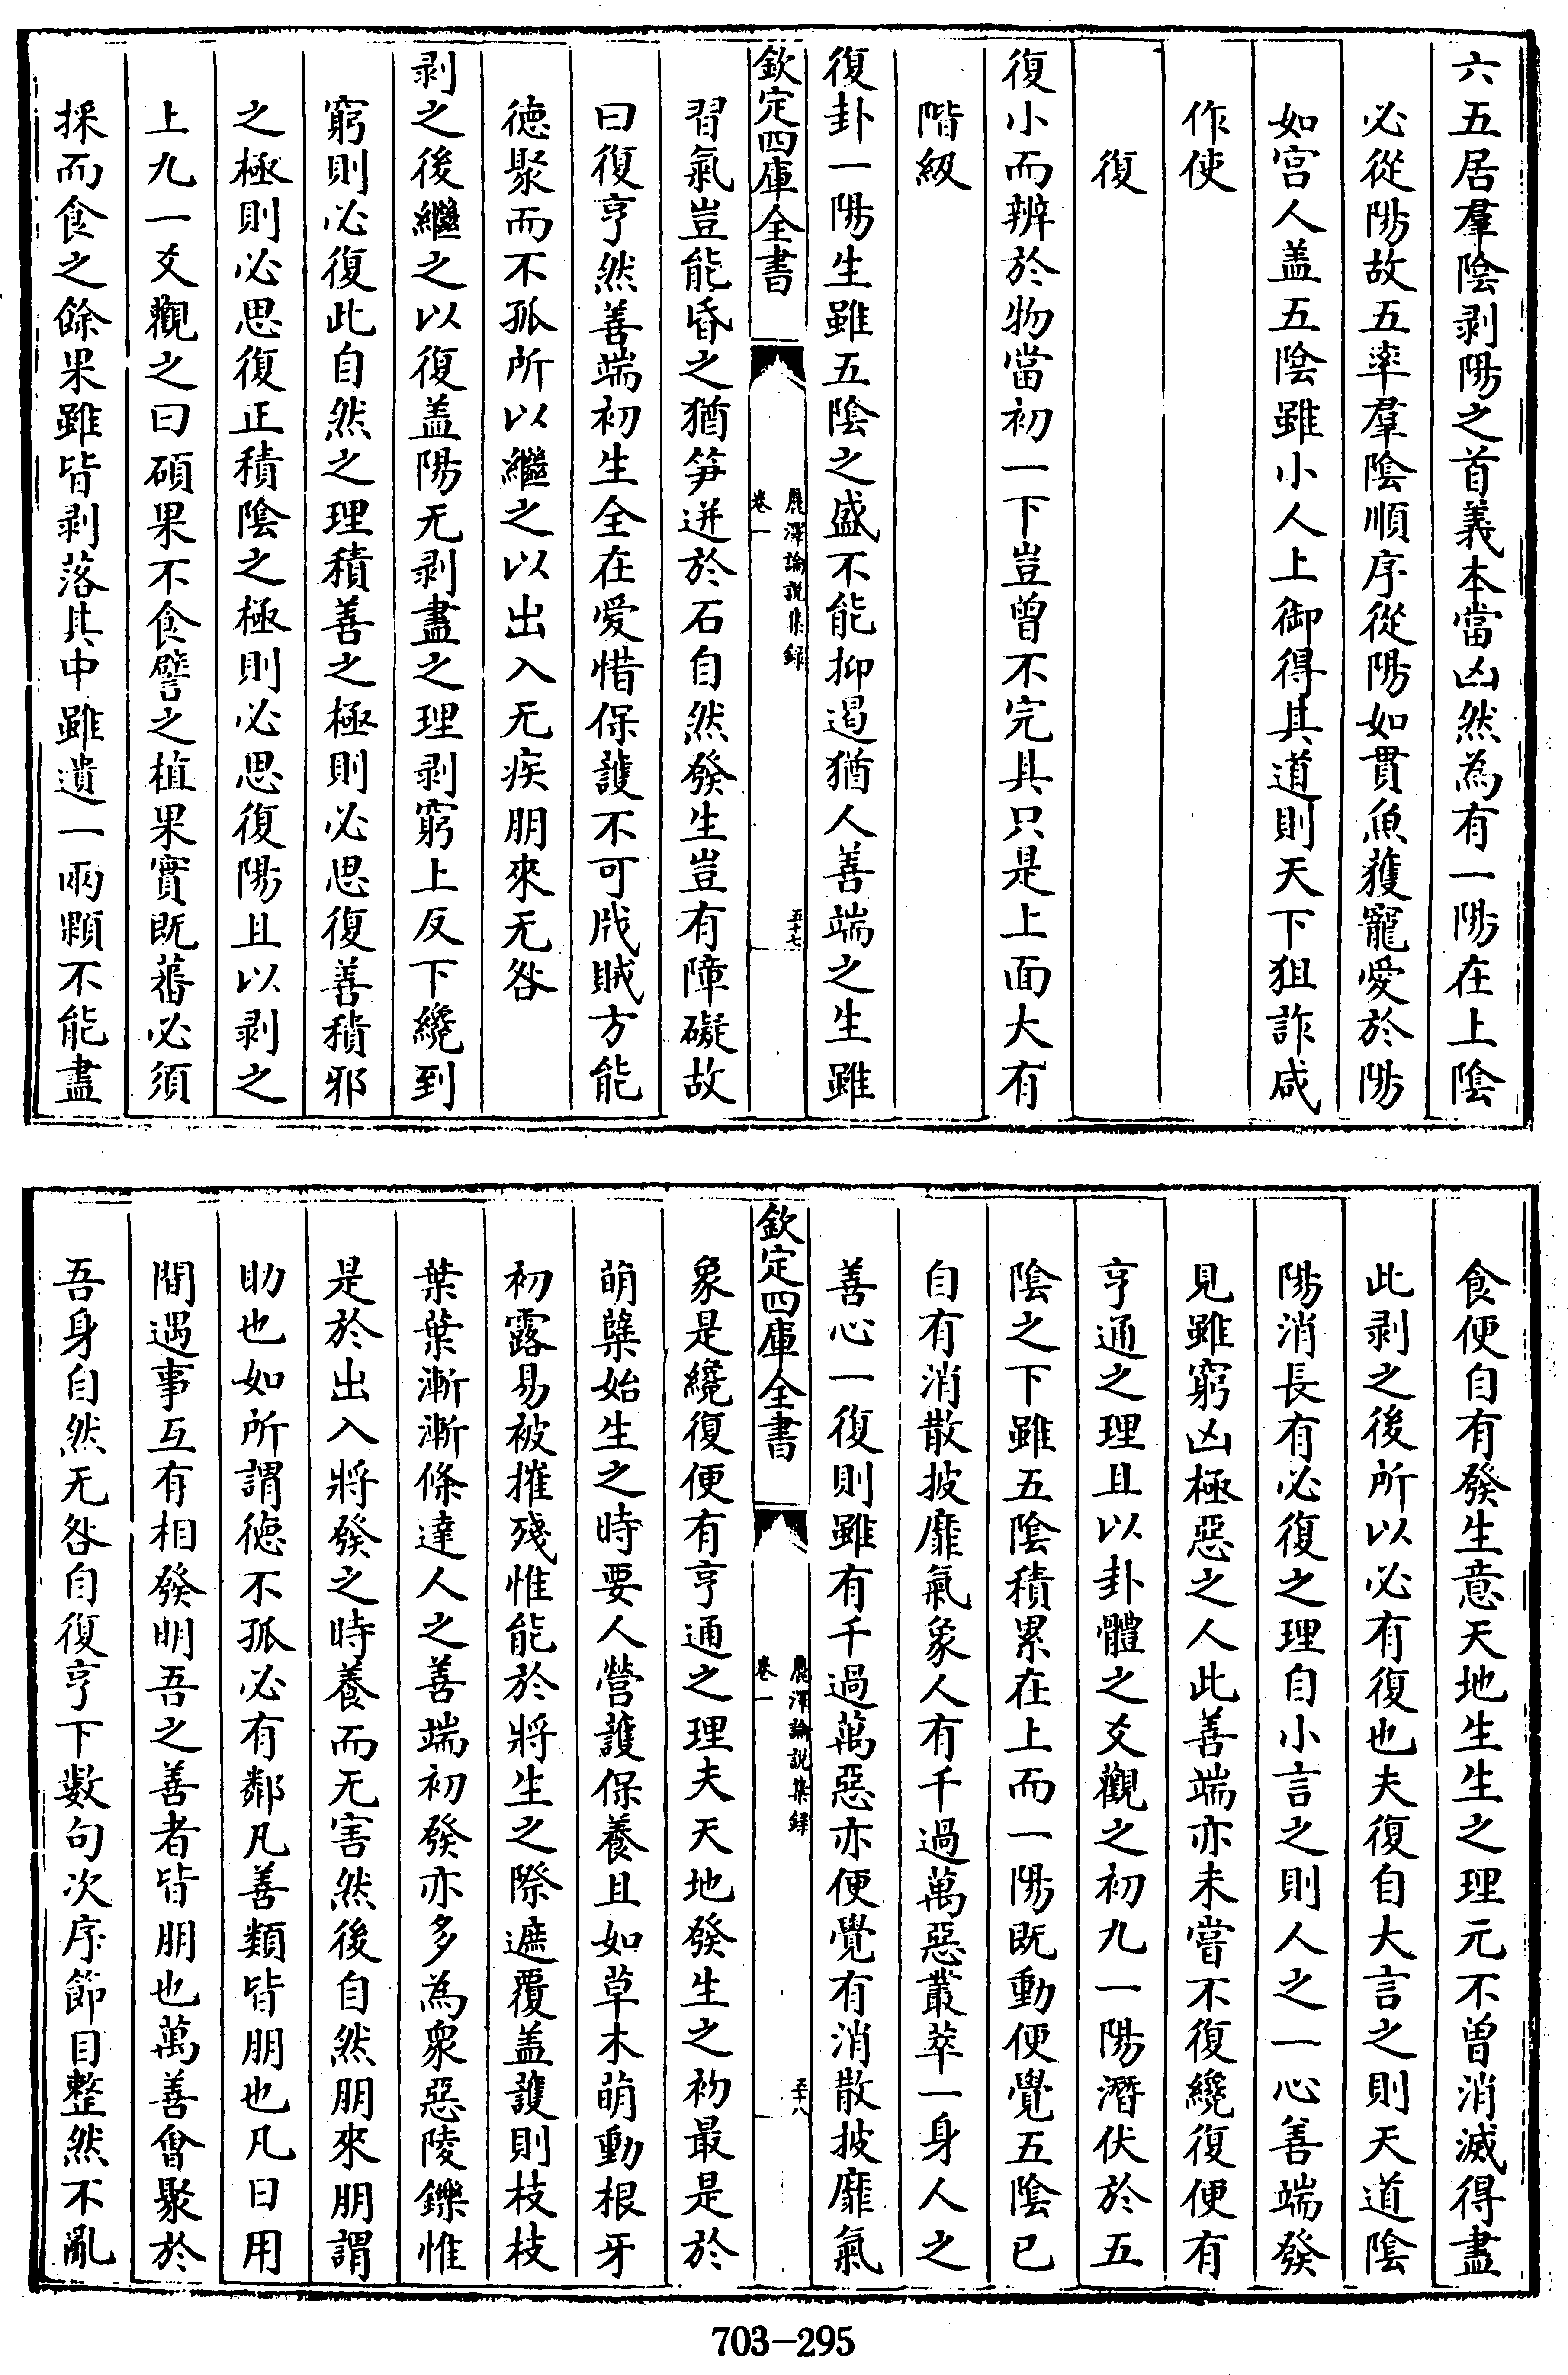 六五居羣隂剥陽之首義本當凶然為有一陽在上隂
必從陽故五率羣隂順序從陽如貫魚獲寵愛於陽
如宫人盖五隂雖小人上御得其道則天下狙詐咸
作使
復
復小而辨於物當初一下豈曾不完具只是上面大有
階級
復卦一陽生雖五隂之盛不能抑遏猶人善端之生雖
欽定四庫全書
麗澤論説集録
卷一
五十七
習氣豈能昏之猶笋迸於石自然發生豈有障礙故
曰復亨然善端初生全在愛惜保護不可戕賊方能
徳聚而不孤所以繼之以出入无疾朋來无咎
剥之後繼之以復盖陽无剥盡之理剥窮上反下纔到
窮則必復此自然之理積善之極則必思復善積邪
之極則必思復正積隂之極則必思復陽且以剥之
上九一爻觀之曰碩果不食譬之植果實既蕃必須
採而食之餘果雖皆剥落其中雖遺一兩顆不能盡
食便自有發生意天地生生之理元不曽消滅得盡
此剥之後所以必有復也夫復自大言之則天道隂
陽消長有必復之理自小言之則人之一心善端發
見雖窮凶極惡之人此善端亦未嘗不復纔復便有
亨通之理且以卦體之爻觀之初九一陽潛伏於五
隂之下雖五隂積累在上而一陽既動便覺五隂已
自有消散披靡氣象人有千過萬惡叢萃一身人之
善心一復則雖有千過萬惡亦便覺有消散披靡氣
欽定四庫全書
麗澤論説集録
卷一
五十八
象是纔復便有亨通之理夫天地發生之初最是於
萌蘖始生之時要人營護保養且如草木萌動根牙
初露易被摧殘惟能於將生之際遮覆盖護則枝枝
葉葉漸漸條達人之善端初發亦多為衆惡陵鑠惟
是於出入將發之時養而无害然後自然朋來朋謂
助也如所謂徳不孤必有鄰凡善類皆朋也凡日用
間遇事互有相發明吾之善者皆朋也萬善會聚於
吾身自然无咎自復亨下數句次序節目整然不亂
703-295